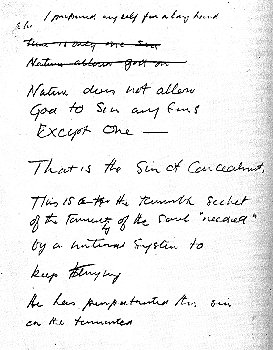 I prepared myself for a long hand
There is only one Sin
Nature allows God on
Nature does not allow
God to Sin any Sins
Except One —
That is the Sin of Concealment,
This is the terrible secret
of the of the Soul "needed"
by a national system to
keep
He has perpetrated this sin
on the tormented